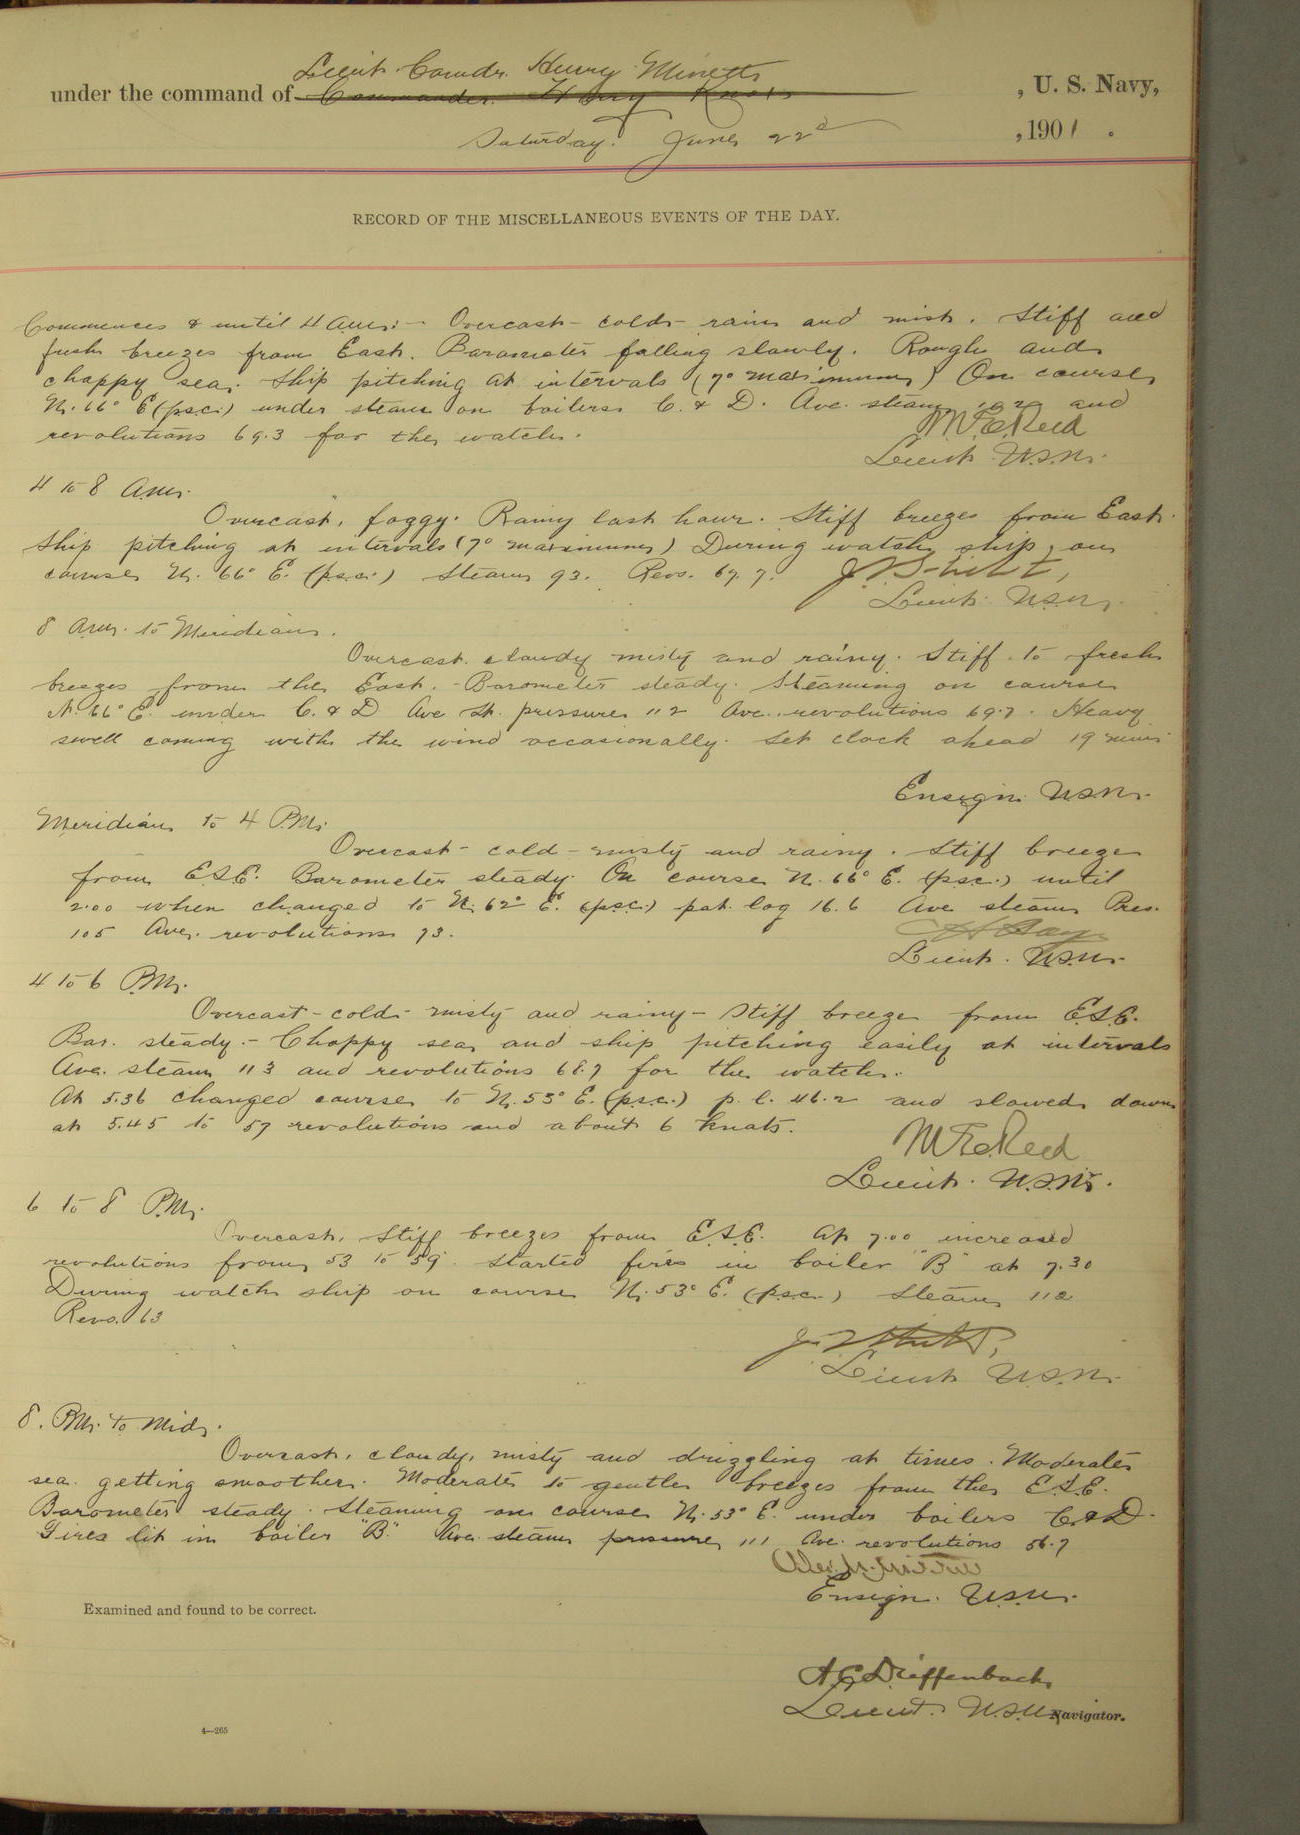 Lieut. Comdr. Henry Minett
under the command of Commander Henry Knox, U. S. Navy,
Saturday. June 22d, 1901.
RECORD OF THE MISCELLANEOUS EVENTS OF THE DAY.
Commences & until 4 a.m:- Overcast - cold - rain and mist. Stiff and
fresh breezes from East. Barometer falling slowly. Rough and
choppy sea. Ship pitching at intervals (7° maximum) On course
N. 66° E (p.s.c.) under steam on boilers C. & D. Ave. steam and
revolutions 69.3 for the watch.
M E Reed
Lieut. U.S.N.
4 to 8 A.M.
Overcast, foggy. Rainy last hour. Stiff breezes from East.
Ship pitching at intervals (7° maximum) During watch ship on
course N. 66° E. (p.s.c.) Steam 93. Revs. 67.7.
Lieut. U.S.N.
8 A.M. to Meridian.
Overcast. cloudy misty and rainy. Stiff to fresh
breezes from the East. - Barometer steady. Steaming on course
N. 66° E. under C. & D Ave St. pressure 112 Ave. revolutions 69.7. Heavy
swell coming with the wind occasionally. Set clock ahead 19 mins
Ensign U.S.N.
Meridian to 4 P.M.
Overcast - cold - misty and rainy. Stiff breeze
from E.S.E. Barometer steady. On course N. 66° E. (p.s.c.) until
2.00 when changed to N. 62° E. (p.s.c.) pat. log 16.6 Ave steam Pres.
105 Ave. revolutions 73.
Lieut. U.S.N.
4 to 6 P.M.
Overcast - cold - misty and rainy - Stiff breeze from E.S.E.
Bar. steady. - Choppy sea and ship pitching easily at intervals
Ave. steam 113 and revolutions 68.7 for the watch.
At 5.36 changed course to N. 53° E. (p.s.c.) p. l. 46.2 and slowed down
at 5.45 to 57 revolutions and about 6 knots.
M E Reed
Lieut. U.S.N.
6 to 8 P.M.
Overcast. Stiff breezes from E.S.E. At 7.00 increased
revolutions from 53 to 59. Started fires in boiler "B" at 7.30
During watch ship on course N. 53° E. (p.s.c.) Steam 112
Revs. 63
Lieut U.S.N.
8. P.M. to Mid.
Overcast, cloudy, misty and drizzling at times. Moderate
sea getting smoother. Moderate to gentle breezes from the E.S.E.
Barometer steady. Steaming on course N. 53° E. under boilers C. & D.
Fires lit in boiler "B." Ave. steam pressure 111 Ave. revolutions 56.7
Ensign. U.S.N.
Examined and found to be correct.
A. E. Dieffenbach
Lieut. U.S.N. Navigator.
4—265